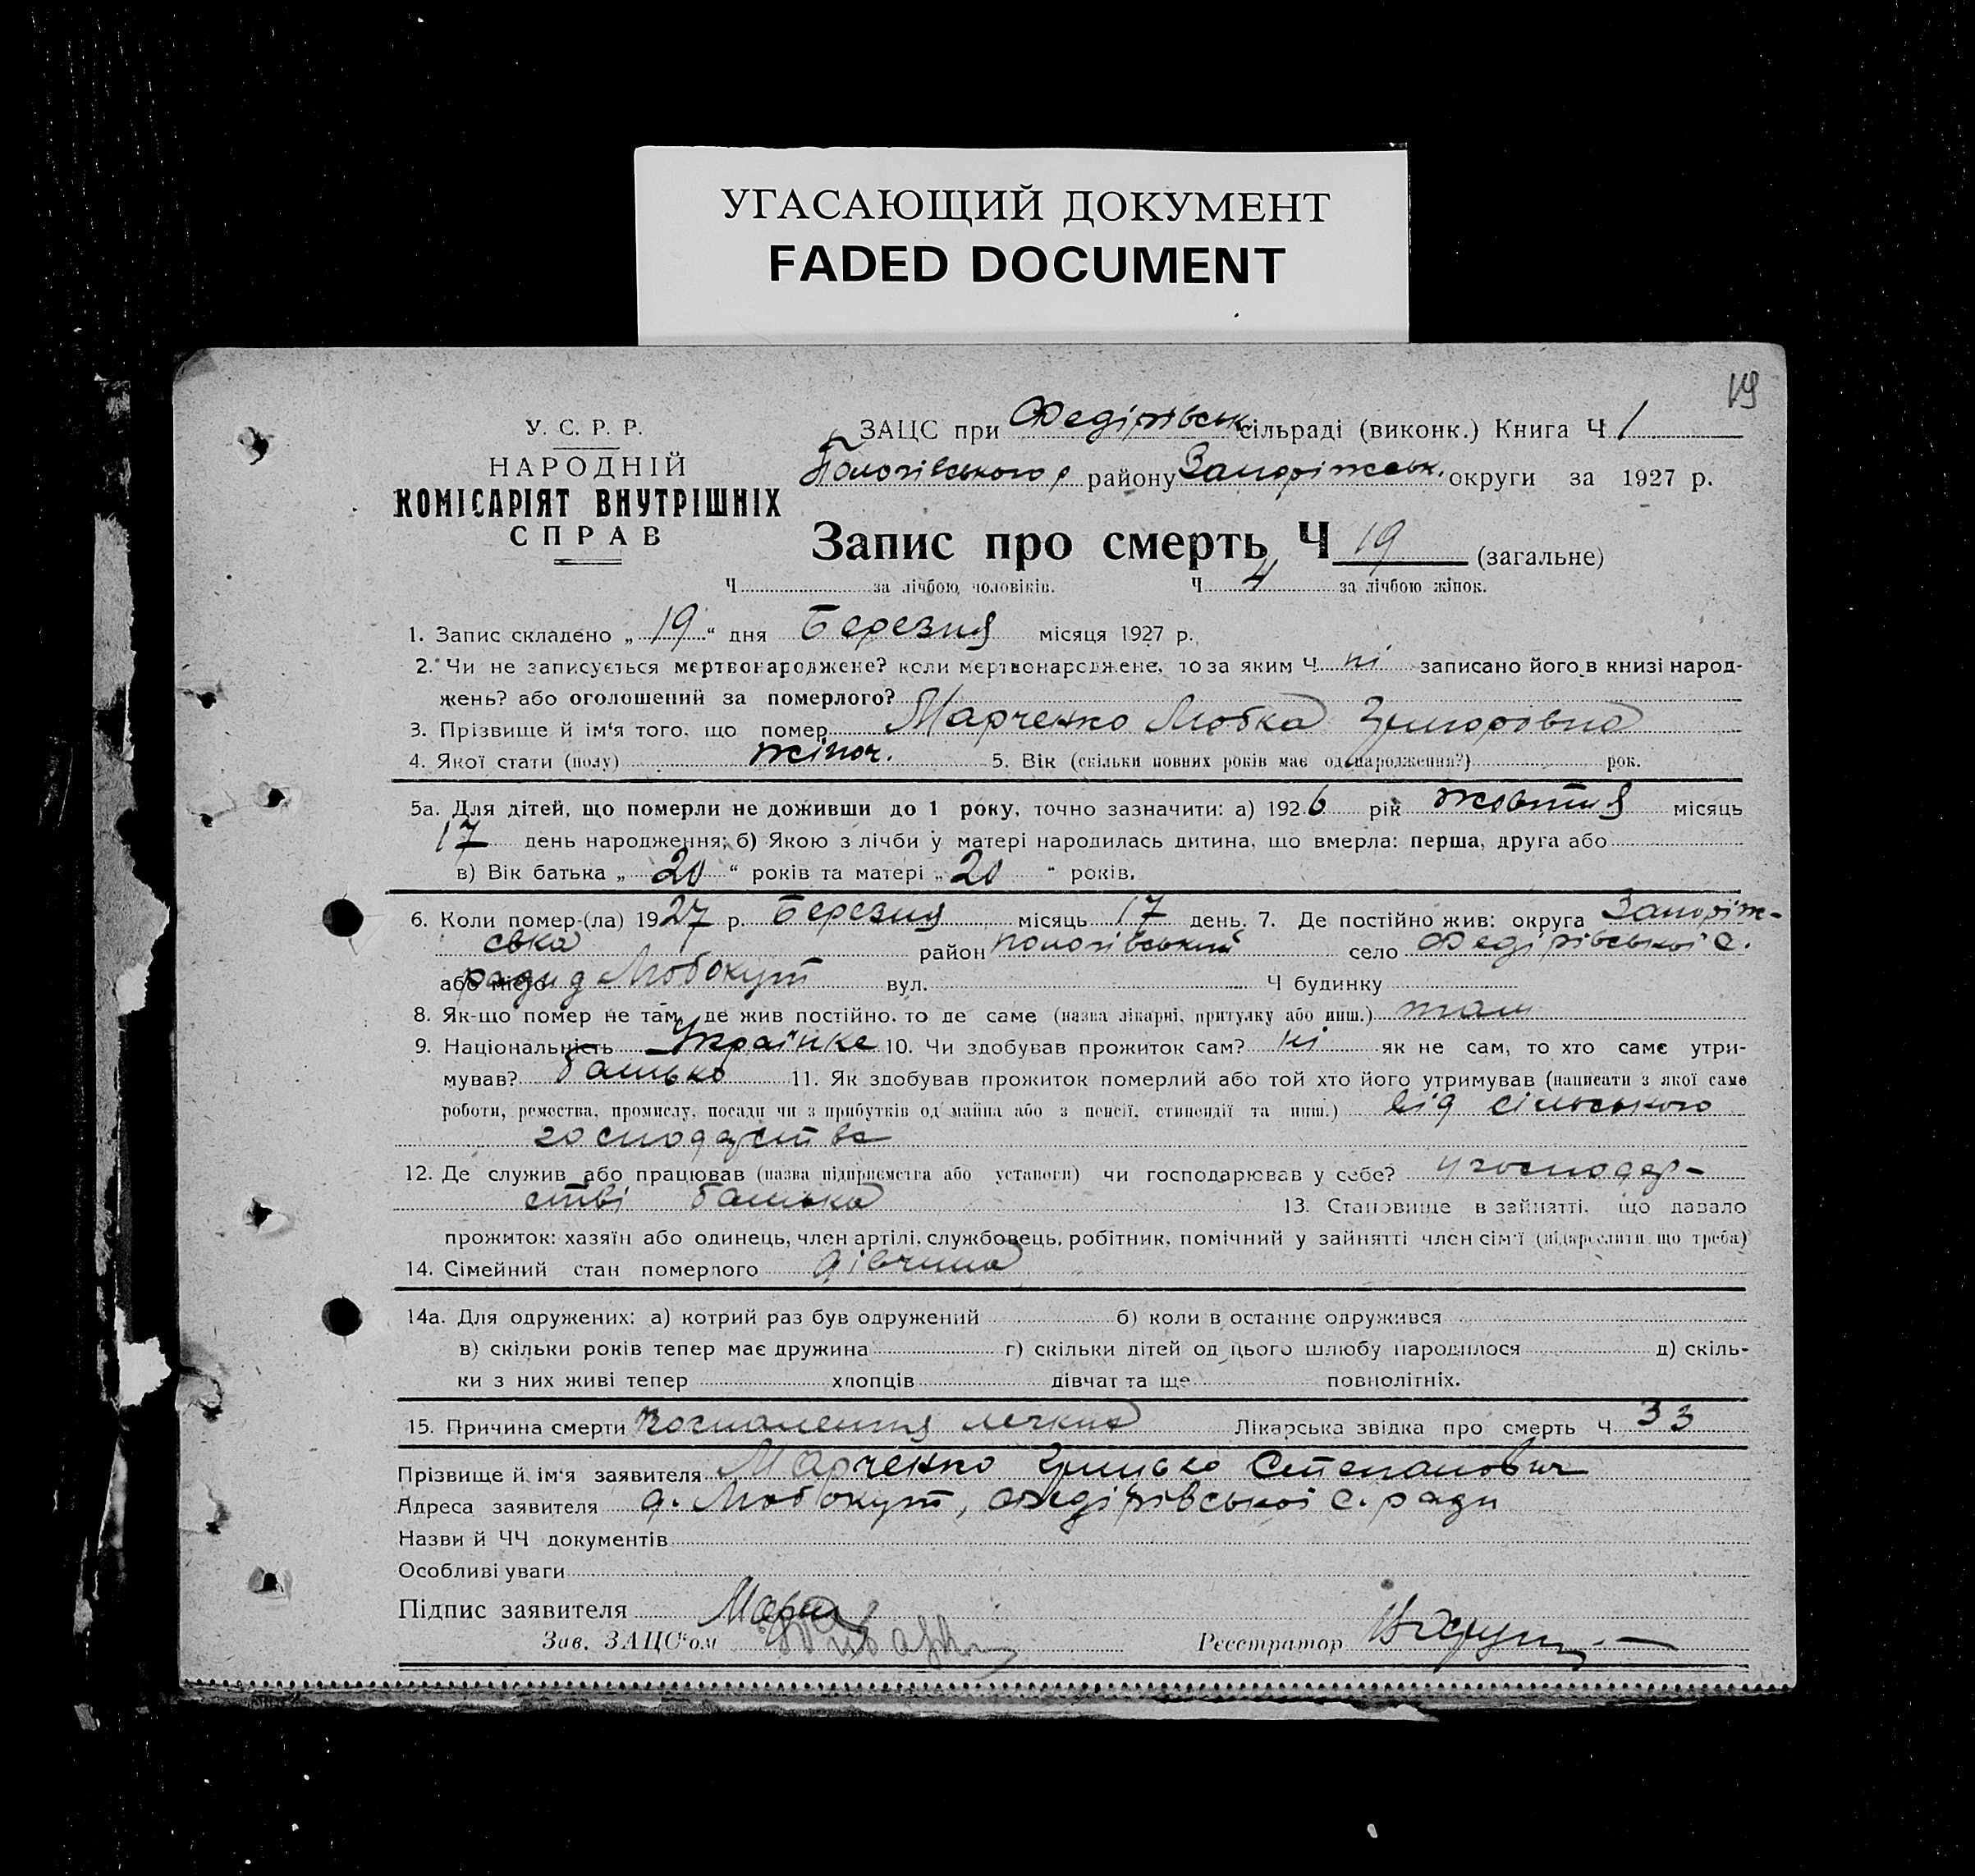 УГАСАЮЩИЙ ДОКУМЕНТ
FADED DOCUMENT
19
У. С. Р. Р.
НАРОДНІЙ
КОМІСАРІЯТ ВНУТРІШНІХ
СПРАВ
ЗАЦС при Федірівськ. сільраді (виконк.) Книга Ч 1
Пологівського району Запоріжськ. округи за 1927 р.
Запис про смерть Ч 19 (загальне)
Ч за лічбою чоловіків. Ч 4 за лічбою жінок.
1. Запис складено „ 19 “ дня Березня місяця 1927 р.
2. Чи не записується мертвонароджене? коли мертвонароджене, то за яким Ч ні записано його в книзі народ-
жень? або оголошений за померлого?
3. Прізвище й ім'я того, що помер Марченко Любка Григорівна
4. Якої стати (полу) жіноч. 5. Вік (скільки повних років має од народження?) рок.
5а. Для дітей, що померли не доживши до 1 року, точно зазначити: а) 1926 рік жовтня місяць
17 день народження; б) Якою з лічби у матері народилась дитина, що вмерла: перша, друга або
в) Вік батька „ 20 “ років та матері „ 20 “ років.
6. Коли помер-(ла) 1927 р. Березня місяць 17 день. 7. Де постійно жив: округа Запоріж-
ська район пологівський село Федірівської с.
або місто ради д Любокут вул. Ч будинку
8. Як-що помер не там, де жив постійно, то де саме (назва лікарні, притулку або инш.) там
9. Національність Українка 10. Чи здобував прожиток сам? ні як не сам, то хто саме утри-
мував? батько 11. Як здобував прожиток померлий або той хто його утримував (написати з якої саме
роботи, ремества, промислу, посади чи з прибутків од майна або з пенсії, стипендії та инш.) від сільського
господарства
12. Де служив або працював (назва підприємства або установи) чи господарював у себе? у господар-
стві батька 13. Становище в зайнятті, що давало
прожиток: хазяїн або одинець, член артілі, службовець, робітник, помічний у зайнятті член сім'ї (підкреслити що треба)
14. Сімейний стан померлого дівчина
14а. Для одружених: а) котрий раз був одружений б) коли в останнє одружився
в) скільки років тепер має дружина г) скільки дітей од цього шлюбу народилося д) скіль-
ки з них живі тепер хлопців дівчат та ще повнолітніх.
15. Причина смерти Воспаления легких Лікарська звідка про смерть Ч 33
Прізвище й ім'я заявителя Марченко Грицько Степанович
Адреса заявителя д. Любокут, Федірівської с. ради
Назви й ЧЧ документів
Особливі уваги
Підпис заявителя Марч
Зав. ЗАЦС'ом
Реєстратор